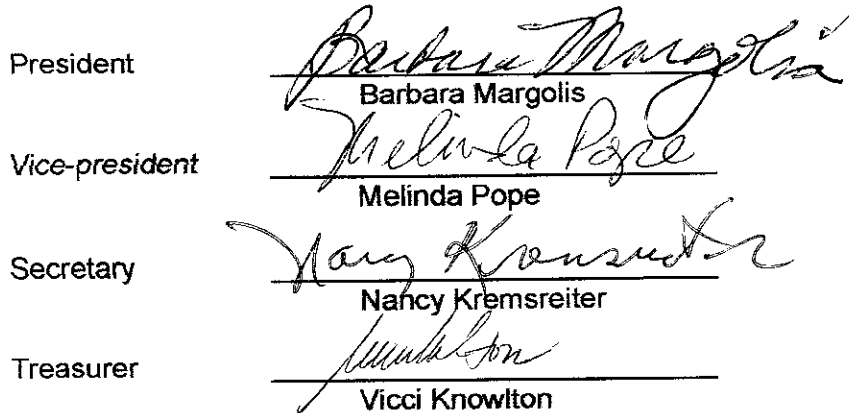 President Barbara Margolis
Barbara Margolis
Vice-president Melinda Pope
Melinda Pope
Secretary
Nancy Kremsreiter
Treasurer
Vicci Knowlton